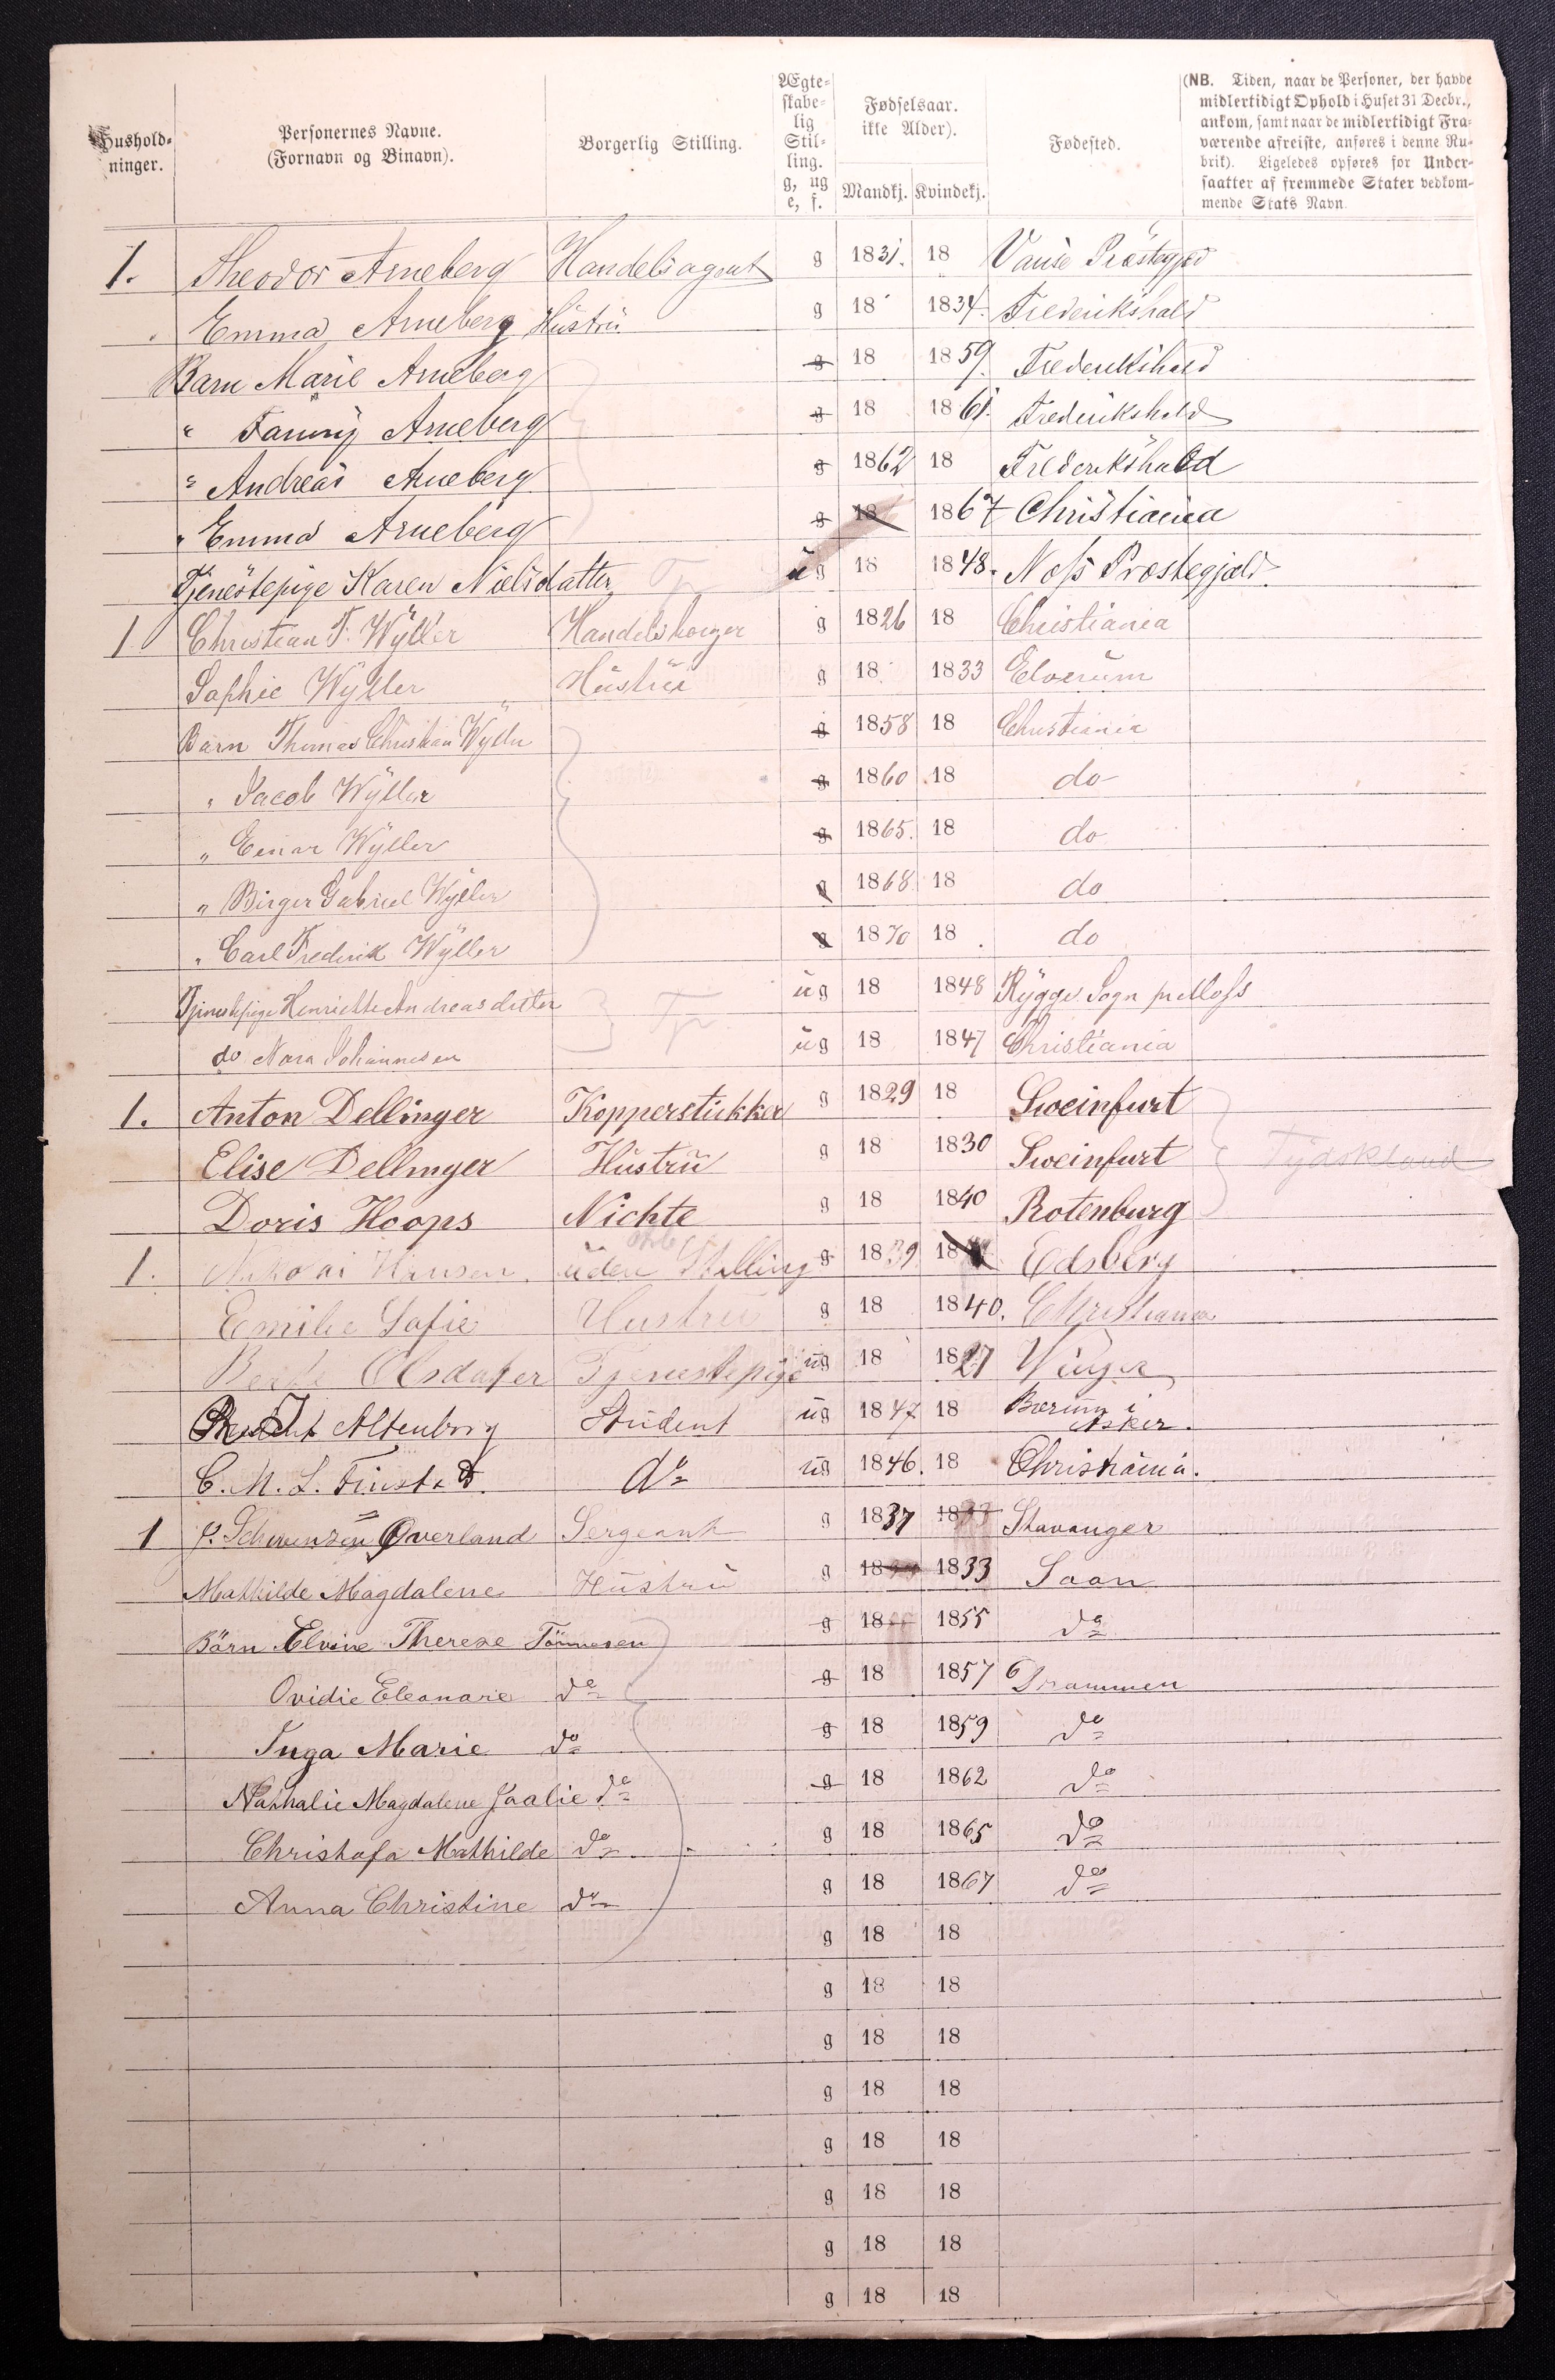 Hushold-
ninger.
Personernes Navne.
(Fornavn og Binavn).
Borgerlig Stilling.
Ægte-
skabe-
lig
Stil-
ling.
g, ug
e, f.
Fødselsaar.
ikke Alder).
Mandkj. Kvindekj.
Fødested.
(NB. Tiden, naar de Personer, der havde
midlertidigt Ophold i Huset 31 Decbr.,
ankom, samt naar de midlertidigt Fra-
værende afreiste, anføres i denne Ru-
brik). Ligeledes opføres for Under-
saatter af fremmede Stater vedkom-
mende Stats Navn.
1. Theodor Arneberg Handelsagent g 1831. 18 Vanse Præstegjed
Emma Arneberg Hustru g 18 1834. Frederikshald
Barn Marie Arneberg g 18 1859. Frederikshald
" Fanny Arneberg g 18 1861. Frederikshald
" Andreas Arneberg g 1862 18 Frederikshald
" Emma Arneberg g 18 1867 Christiania
Tjenestepige Karen Nielsdatter Tp ug 18 1848. Moss Prostegjeld.
1 Christian F. Wyller Handelsborger g 1826 18 Christiania
Sophie Wyller Hustru g 18 1833 Elverum
Barn Thomas Christian Wyller g 1858 18 Christiania
" Jacob Wyller g 1860 18 do
" Einar Wyller g 1865. 18 do
" Birger Gabriel Wyller g 1868 18 do
" Carl Frederik Wyller g 1870 18 do
Tjenestepige Henriette Andreasdatter Tp ug 18 1848 Rygge Sogn pr Moss
do Nara Johannesen ug 18 1847 Christiania
1. Anton Dellinger Kopperstikker g 1829 18 Sweinfurt
Elise Dellinger Hustru g 18 1830 Sweinfurt Tydskland
Doris Hoops Nichte g 18 1840 Rotenburg
1. Nikolai Hansen. uden Stilling g 1839 18 Edsberg
Emilie Sofie Hustru g 18 1840. Christiania
Berte Olsdater Tjenestepige ug 18 1827 Vinger
Altenborg Student ug 1847 18 Bærum i
Asker.
C. M. L. Finstad. do ug 1846. 18 Christiania.
1 P. Schwensen Qverland Sergeant g 1837 1833 Stavanger
Mathilde Magdalene Hustru g 18 1833 Saan
Börn Elvine Therese Tönnesen g 18 1855 do
Ovidie Eleonare do g 18 1857 Drammen
Inga Marie do g 18 1859 do
Nathalie Magdalene Jaalie do g 18 1862 do
Christofa Mathilde do g 18 1865 do
Anna Christine do g 18 1867 do
g 18 18
g 18 18
g 18 18
g 18 18
g 18 18
g 18 18
g 18 18
g 18 18